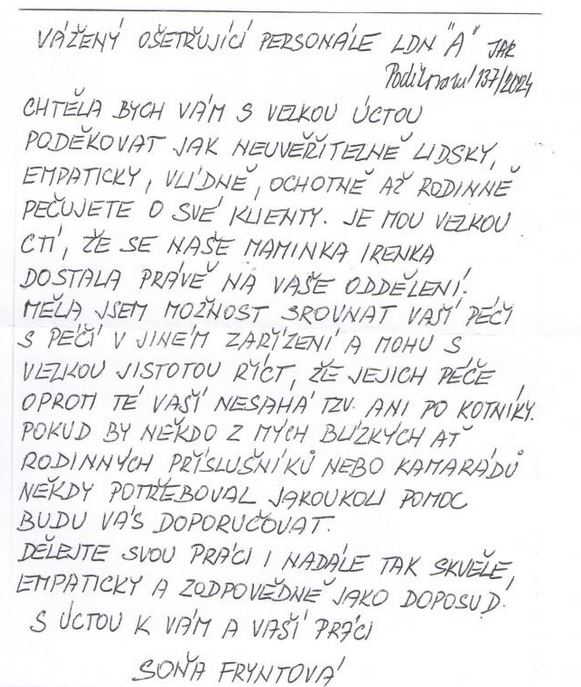 VÁŽENÝ OŠETŘUJÍCÍ PERSONÁLE LDN "A" JAK
Poděkování 137/2024
CHTĚLA BYCH VÁM S VELKOU ÚCTOU
PODĚKOVAT JAK NEUVĚŘITELNĚ LIDSKY,
EMPATICKY, VLÍDNĚ, OCHOTNĚ AŽ RODINNĚ
PEČUJETE O SVÉ KLIENTY. JE MOU VELKOU
CTÍ, ŽE SE NAŠE MAMINKA IRENKA
DOSTALA PRÁVĚ NA VAŠE ODDĚLENÍ.
MĚLA JSEM MOŽNOST SROVNAT VAŠÍ PÉČI
S PÉČÍ V JINÉM ZAŘÍZENÍ A MOHU S
VELKOU JISTOTOU ŘÍCT, ŽE JEJICH PÉČE
OPROTI TÉ VAŠÍ NESAHÁ TZV. ANI PO KOTNÍKY.
POKUD BY NĚKDO Z MÝCH BLÍZKÝCH AŤ
RODINNÝCH PŘÍSLUŠNÍKŮ NEBO KAMARÁDŮ
NĚKDY POTŘEBOVAL JAKOUKOLI POMOC
BUDU VÁS DOPORUČOVAT.
DĚLEJTE SVOU PRÁCI I NADÁLE TAK SKVĚLE,
EMPATICKY A ZODPOVĚDNĚ JAKO DOPOSUD.
S ÚCTOU K VÁM A VAŠÍ PRÁCI
SOŇA FRYNTOVÁ